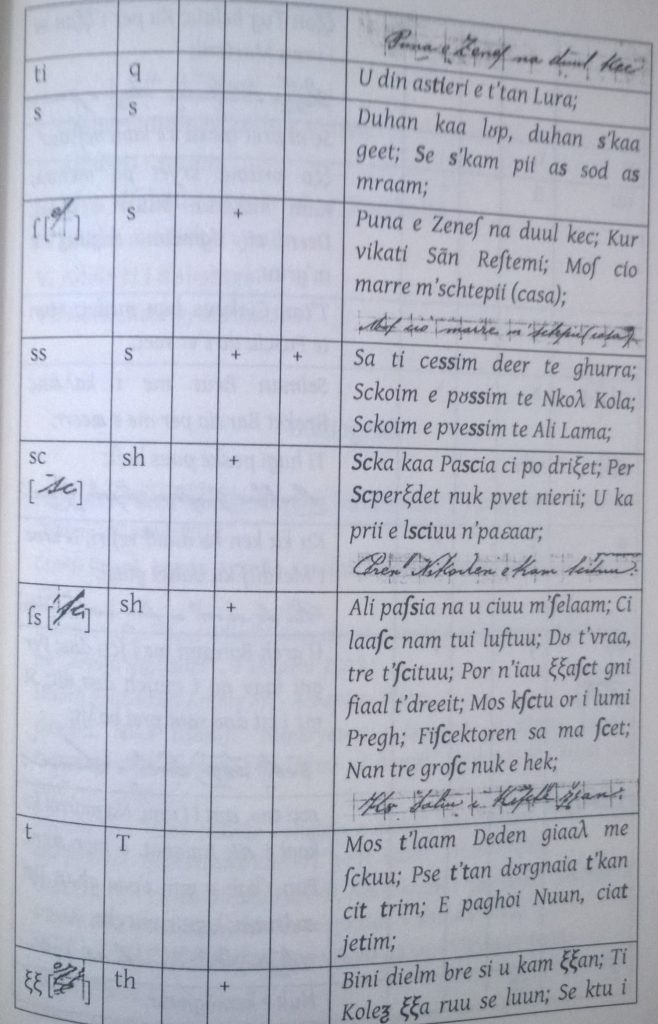 Puna e Zeneſ na duul kec
ti q U din astieri e t'tan Lura;
s s Duhan kaa lʊp, duhan s'kaa
geet; Se s'kam pii as sod as
mraam;
ſ [ ] s + Puna e Zeneſ na duul kec; Kur
vikati Sãn Reſtemi; Moſ cio
marre m'schtepii (casa);
Moſ cio marre m'schtepii (casa)
ss s + + Sa ti cessim deer te ghurra;
Sckoim e pʊssim te Nkoλ Kola;
Sckoim e pvessim te Ali Lama;
sc sh + Scka kaa Pascia ci po driξet; Per
[sc] Scperξdet nuk pvet nierii; U ka
prii e lsciuu n'paɛaar;
ekam
ſs [ ] sh + Ali paſsia na u ciuu m'ſelaam; Ci
laaſc nam tui luftuu; Dʊ t'vraa,
tre t'ſcituu; Por n'iau ξξaſct gni
fiaal t'dreeit; Mos kſctu or i lumi
Pregh; Fiſcektoren sa ma ſcet;
Nan tre groſc nuk e hek;
t T Mos t'laam Deden giaaλ me
ſckuu; Pse t'tan dʊrgnaia t'kan
cit trim; E paghoi Nuun, ciat
jetim;
ξξ [ ] th + Bini dielm bre si u kam ξξan; Ti
Koleʓ ξξa ruu se luun; Se ktu i